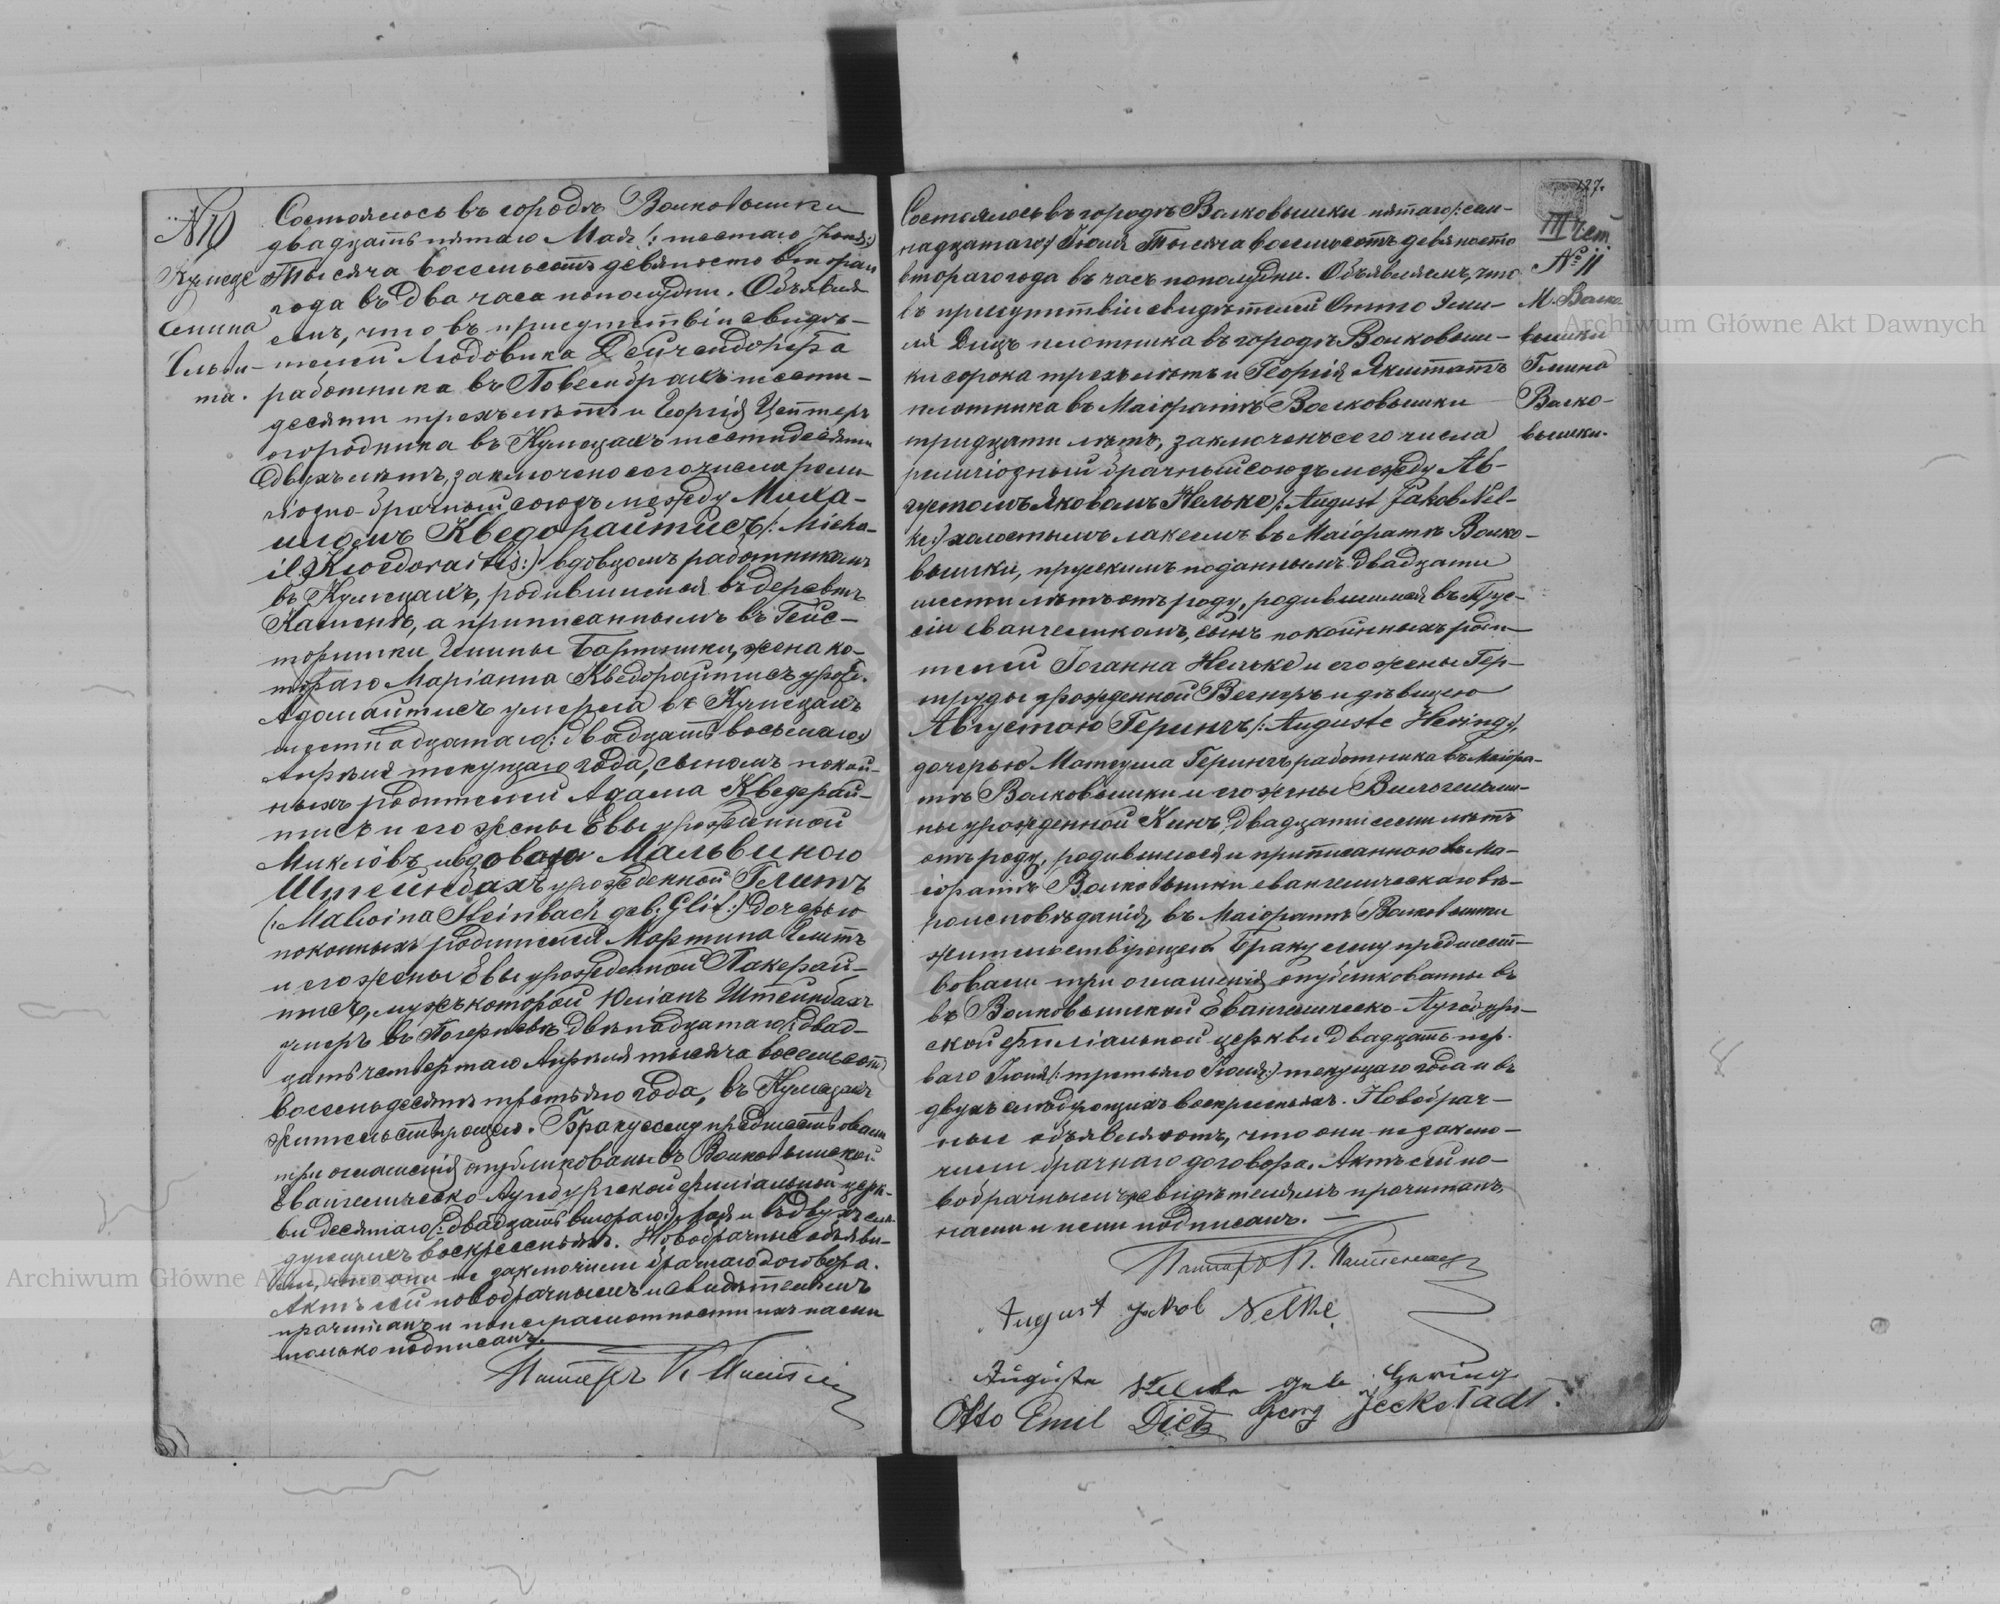 №10
Кумеце
Гмина
Гельги-
та.
Состоялось въ городѣ Волковышки
двадцать пятаго Мая /: шестаго Іюня:/
Тысяча восемьсотъ девяносто втораго
года въ два часа пополудни. Объявля
емъ, что въ присутствіи свидѣ-
телей Людовика
работника въ шести-
десяти трехъ лѣтъ и Георгія
огородника въ Кумецахъ шестидесяти
двухъ лѣтъ, заключено сего числа рели
гіозно-брачный союзъ между Миха-
иломъ Кведорайтисъ /: Micha-
el Kwedoraitis:/ вдовцомъ работникомъ
въ Кумецахъ, родившимся въ деревнѣ
а приписаннымъ въ Гейс-
тершики Гмины Бартники, жена ко-
тораго Маріанна Кведорайтисъ урож.
Адомайтисъ умерла въ Кумецахъ
шестнадцатаго /: двадцать восьмаго:/
Апрѣля текущаго года, сыномъ покой-
ныхъ родителей Адама Кведорай-
тисъ и его жены Евы урожденной
Микловъ и вдовою Мальвиною
Штейнбахъ урожденной Глитъ
(: Malwina Steinbach geb. Glit :) дочерью
покойныхъ родителей Мартина Глитъ
и его жены Евы урожденной Пакерай-
тисъ, мужъ которой Юліанъ Штейнбахъ
умеръ въ двѣнадцатаго /: двад-
цать четвертаго Апрѣля тысяча восемьсотъ
восемьдесятъ третьяго года, въ Кумецахъ
жительствующею. Браку сему предшествовали
три оглашенія опубликованы въ Волковышской
Евангелическо Аугсбургской филіальной церк-
ви десятаго /: двадцать втораго:/ Мая и въ двухъ слѣ-
дующихъ воскресеньяхъ. Новобрачные объяви-
ли, что они не заключили брачнаго договора.
Актъ сей новобрачнымъ и свидѣтелямъ
прочитанъ и по неграмотности ихъ нами
только подписанъ.
Пасторъ К.
127.
III чет.
№ 11
М. Волко
вышки
Гмина
Волко-
вышки.
Состоялось въ городѣ Волковышки пятаго /: сем-
надцатаго:/ Іюля Тысяча восемьсотъ девяносто
втораго года въ часъ пополудни. Объявляемъ, что
въ присутствіи свидѣтелей Отто Эми-
ля Дицъ плотника въ городѣ Волковыш-
ки сорока трехъ лѣтъ и Георгія Якштатъ
плотника въ Маіоратѣ Волковышки
тридцати лѣтъ, заключенъ сего числа
религіозный брачный союзъ между Ав-
густомъ Яковомъ Нельке /: August Jakob Nel-
ke:/ холостымъ лакеемъ въ Маіоратѣ Волко-
вышки, прускимъ подданнымъ двадцати
шести лѣтъ отъ роду, родившимся въ Прус-
сіи евангеликомъ, сынъ покойныхъ роди-
телей Іоганна Нельке и его жены Гер-
труды урожденной Вегнеръ и дѣвицею
Августою Герингъ /: Auguste Hering:/,
дочерью Матеуша Герингъ работника въ Маіора-
тѣ Волковышки и его жены Вильгельми-
ны урожденной Кинъ, двадцати семи лѣтъ
отъ роду, родившеюся и приписанною въ Ма-
іоратѣ Волковышки евангелическаго вѣ-
роисповѣданія, въ Маіоратѣ Волковышки
жительствующею. Браку сему предшест-
вовали три оглашенія опубликованные въ
въ Волковышской Евангелическо-Аугсбург-
ской филіальной церкви двадцать пер-
ваго Іюня /: третьяго Іюля:/ текущаго года и въ
двухъ слѣдующихъ воскресеньяхъ. Новобрач-
ные объявляютъ, что они не заклю-
чили брачнаго договора. Актъ сей но-
вобрачнымъ, свидѣтелямъ прочитанъ,
нами и ними подписанъ.
Пасторъ К.
August Jakob Nelke
Auguste Nelke geb Hering
Otto Emil Dietz Georg Jeckstadt.
Archiwum Główne Akt Dawnych
Archiwum Główne Akt Dawnych